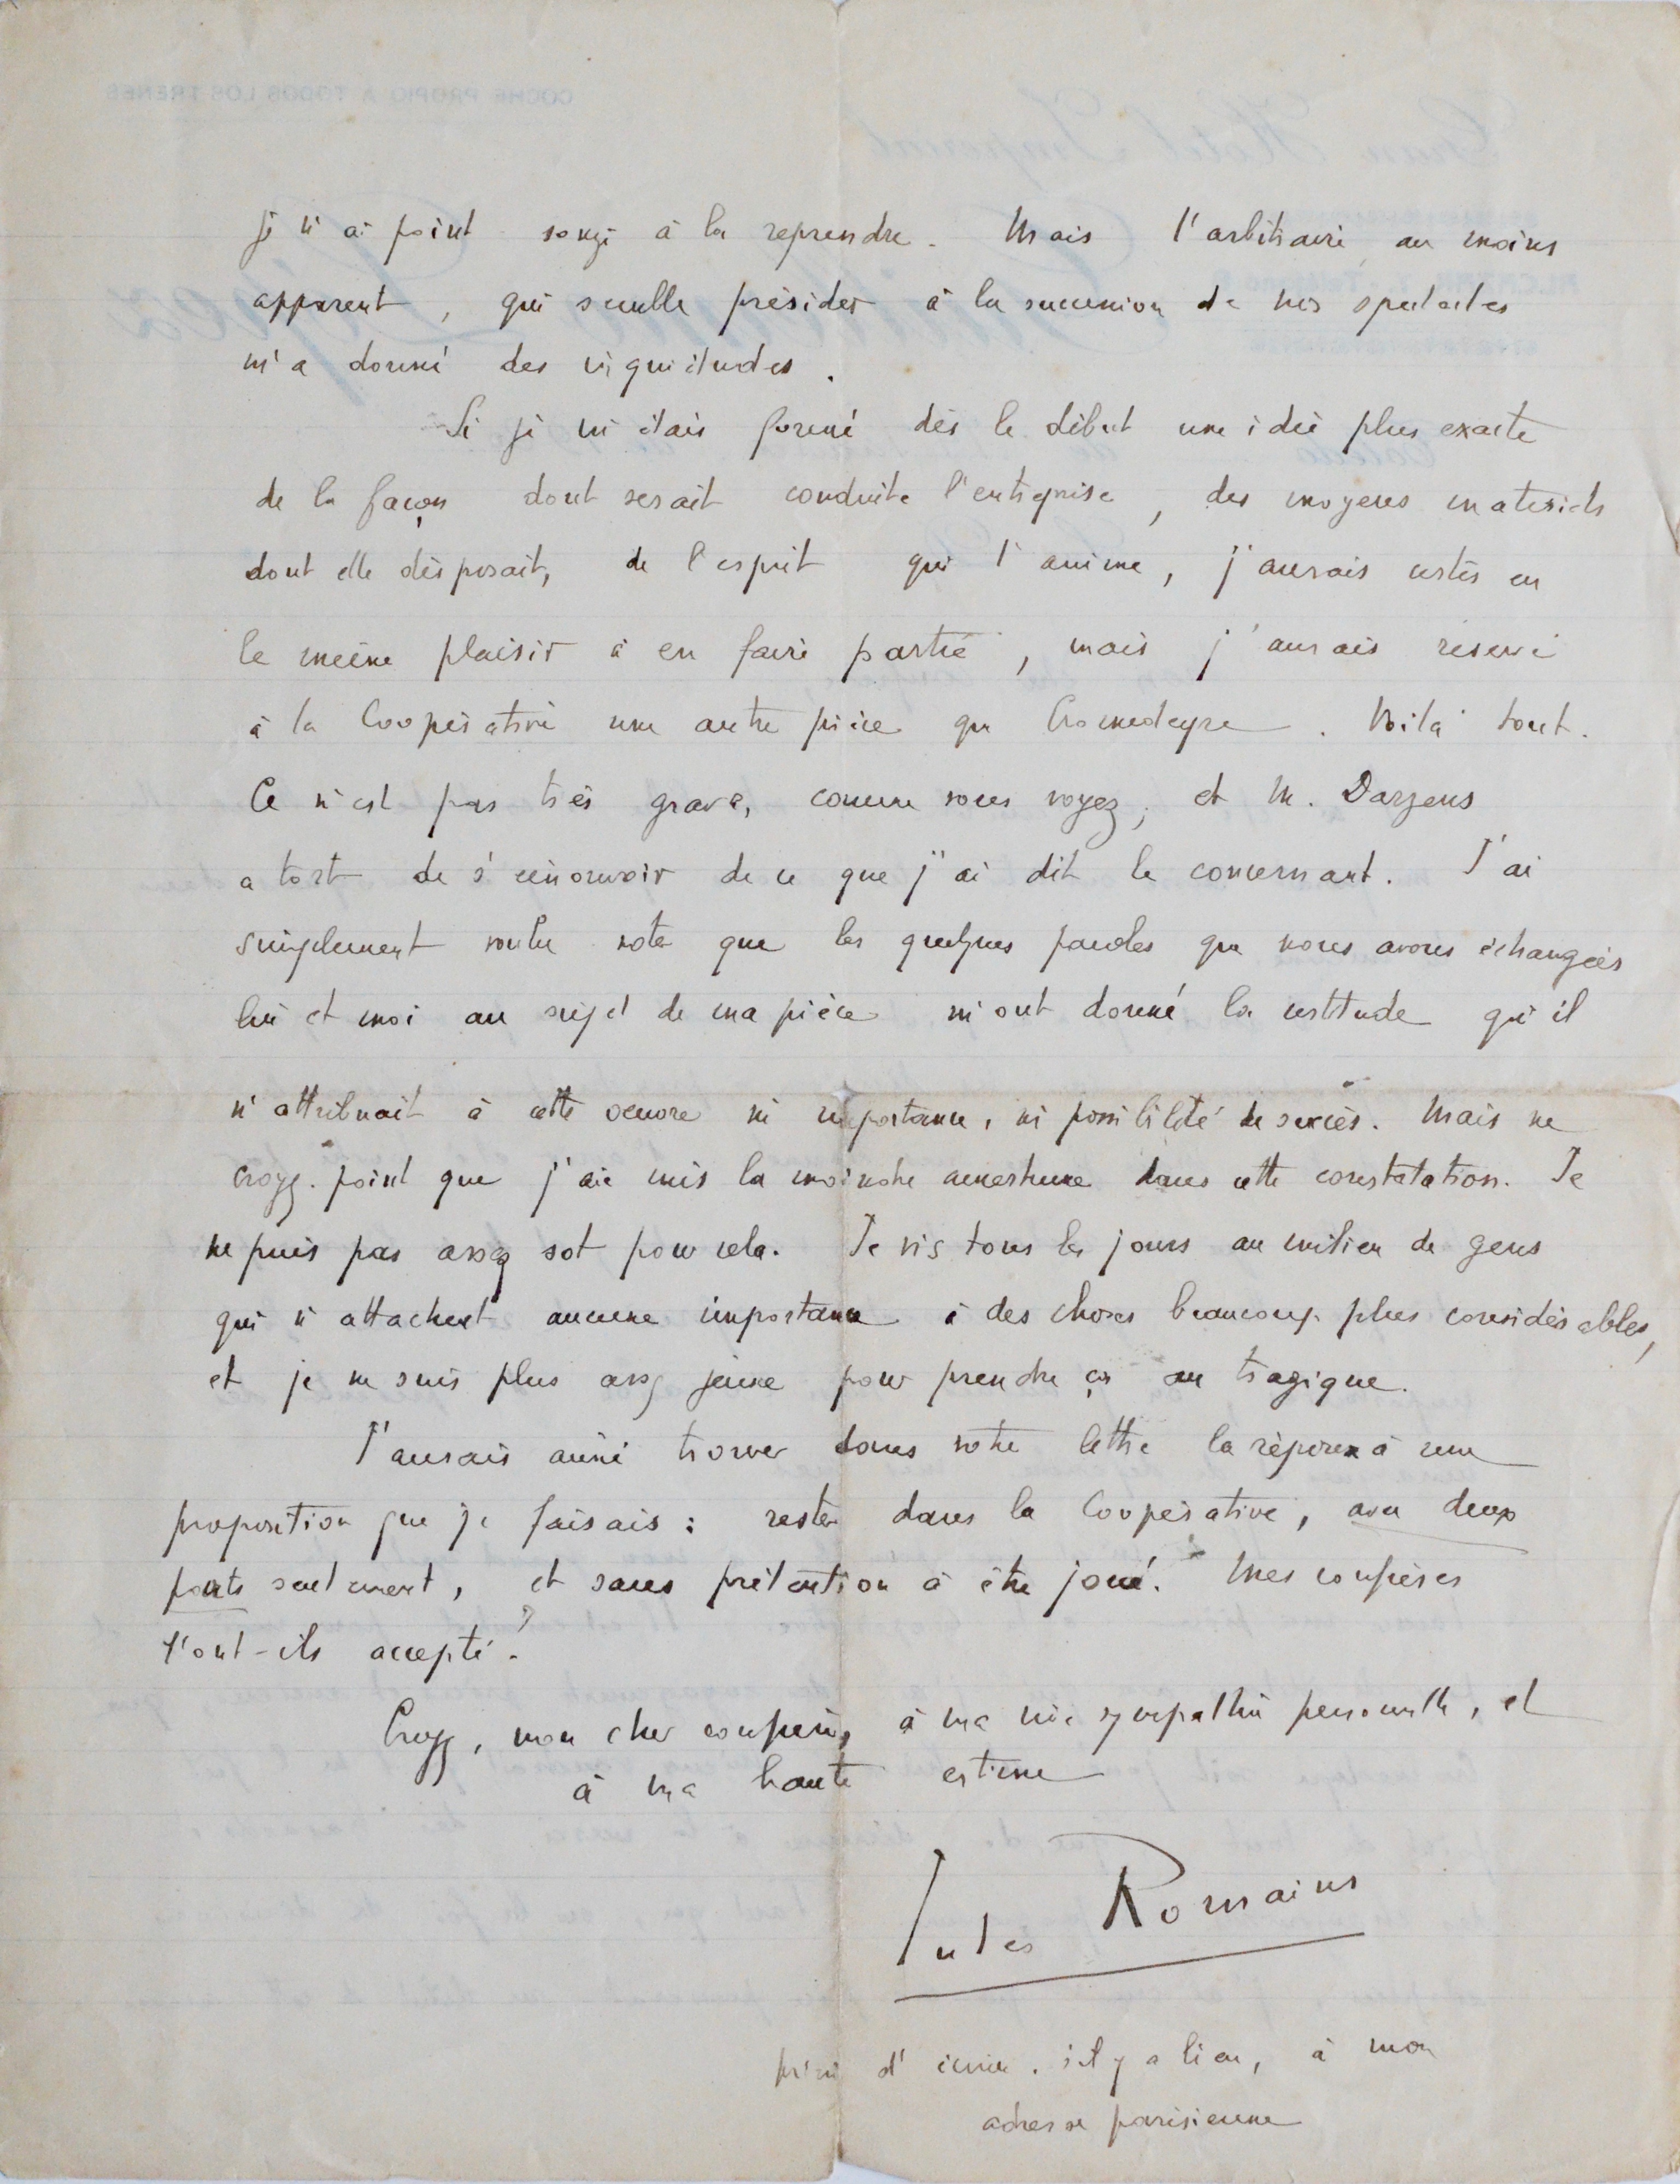 je n'ai point songé à la reprendre. Mais l'arbitraire, au moins
apparent, qui semble présider à la succession de nos spectacles
m'a donné des inquiétudes.
Si je m'étais formé dès le début une idée plus exacte
de la façon dont serait conduite l'entreprise, des moyens matériels
dont elle disposait, de l'esprit qui l'anime, j'aurais certes eu
le même plaisir à en faire partie, mais j'aurais réservé
à la Coopérative une autre pièce que Cromedeyre. Voilà tout.
Ce n'est pas très grave, comme vous voyez, et M. Darzens
a tort de s'émouvoir de ce que j'ai dit le concernant. J'ai
simplement voulu noter que les quelques paroles que nous avons échangées
lui et moi au sujet de ma pièce m'ont donné la certitude qu'il
n'attribuait à cette oeuvre ni importance, ni possibilité de succès. Mais ne
croyez point que j'aie mis la moindre amertume dans cette constatation. Je
ne suis pas assez sot pour cela. Je vis tous les jours au milieu de gens
qui n'attachent aucune importance à des choses beaucoup plus considérables,
et je ne suis plus assez jeune pour prendre ça au tragique.
J'aurais aimé trouver dans votre lettre la réponse à une
proposition que je faisais : rester dans la Coopérative, avec deux
parts seulement, et sans prétention à être joué. Mes confrères
l'ont-ils accepté ?
Croyez, mon cher confrère, à ma vive sympathie personnelle, et
à ma haute estime
Jules Romains
prière d'écrire, s'il y a lieu, à mon
adresse parisienne